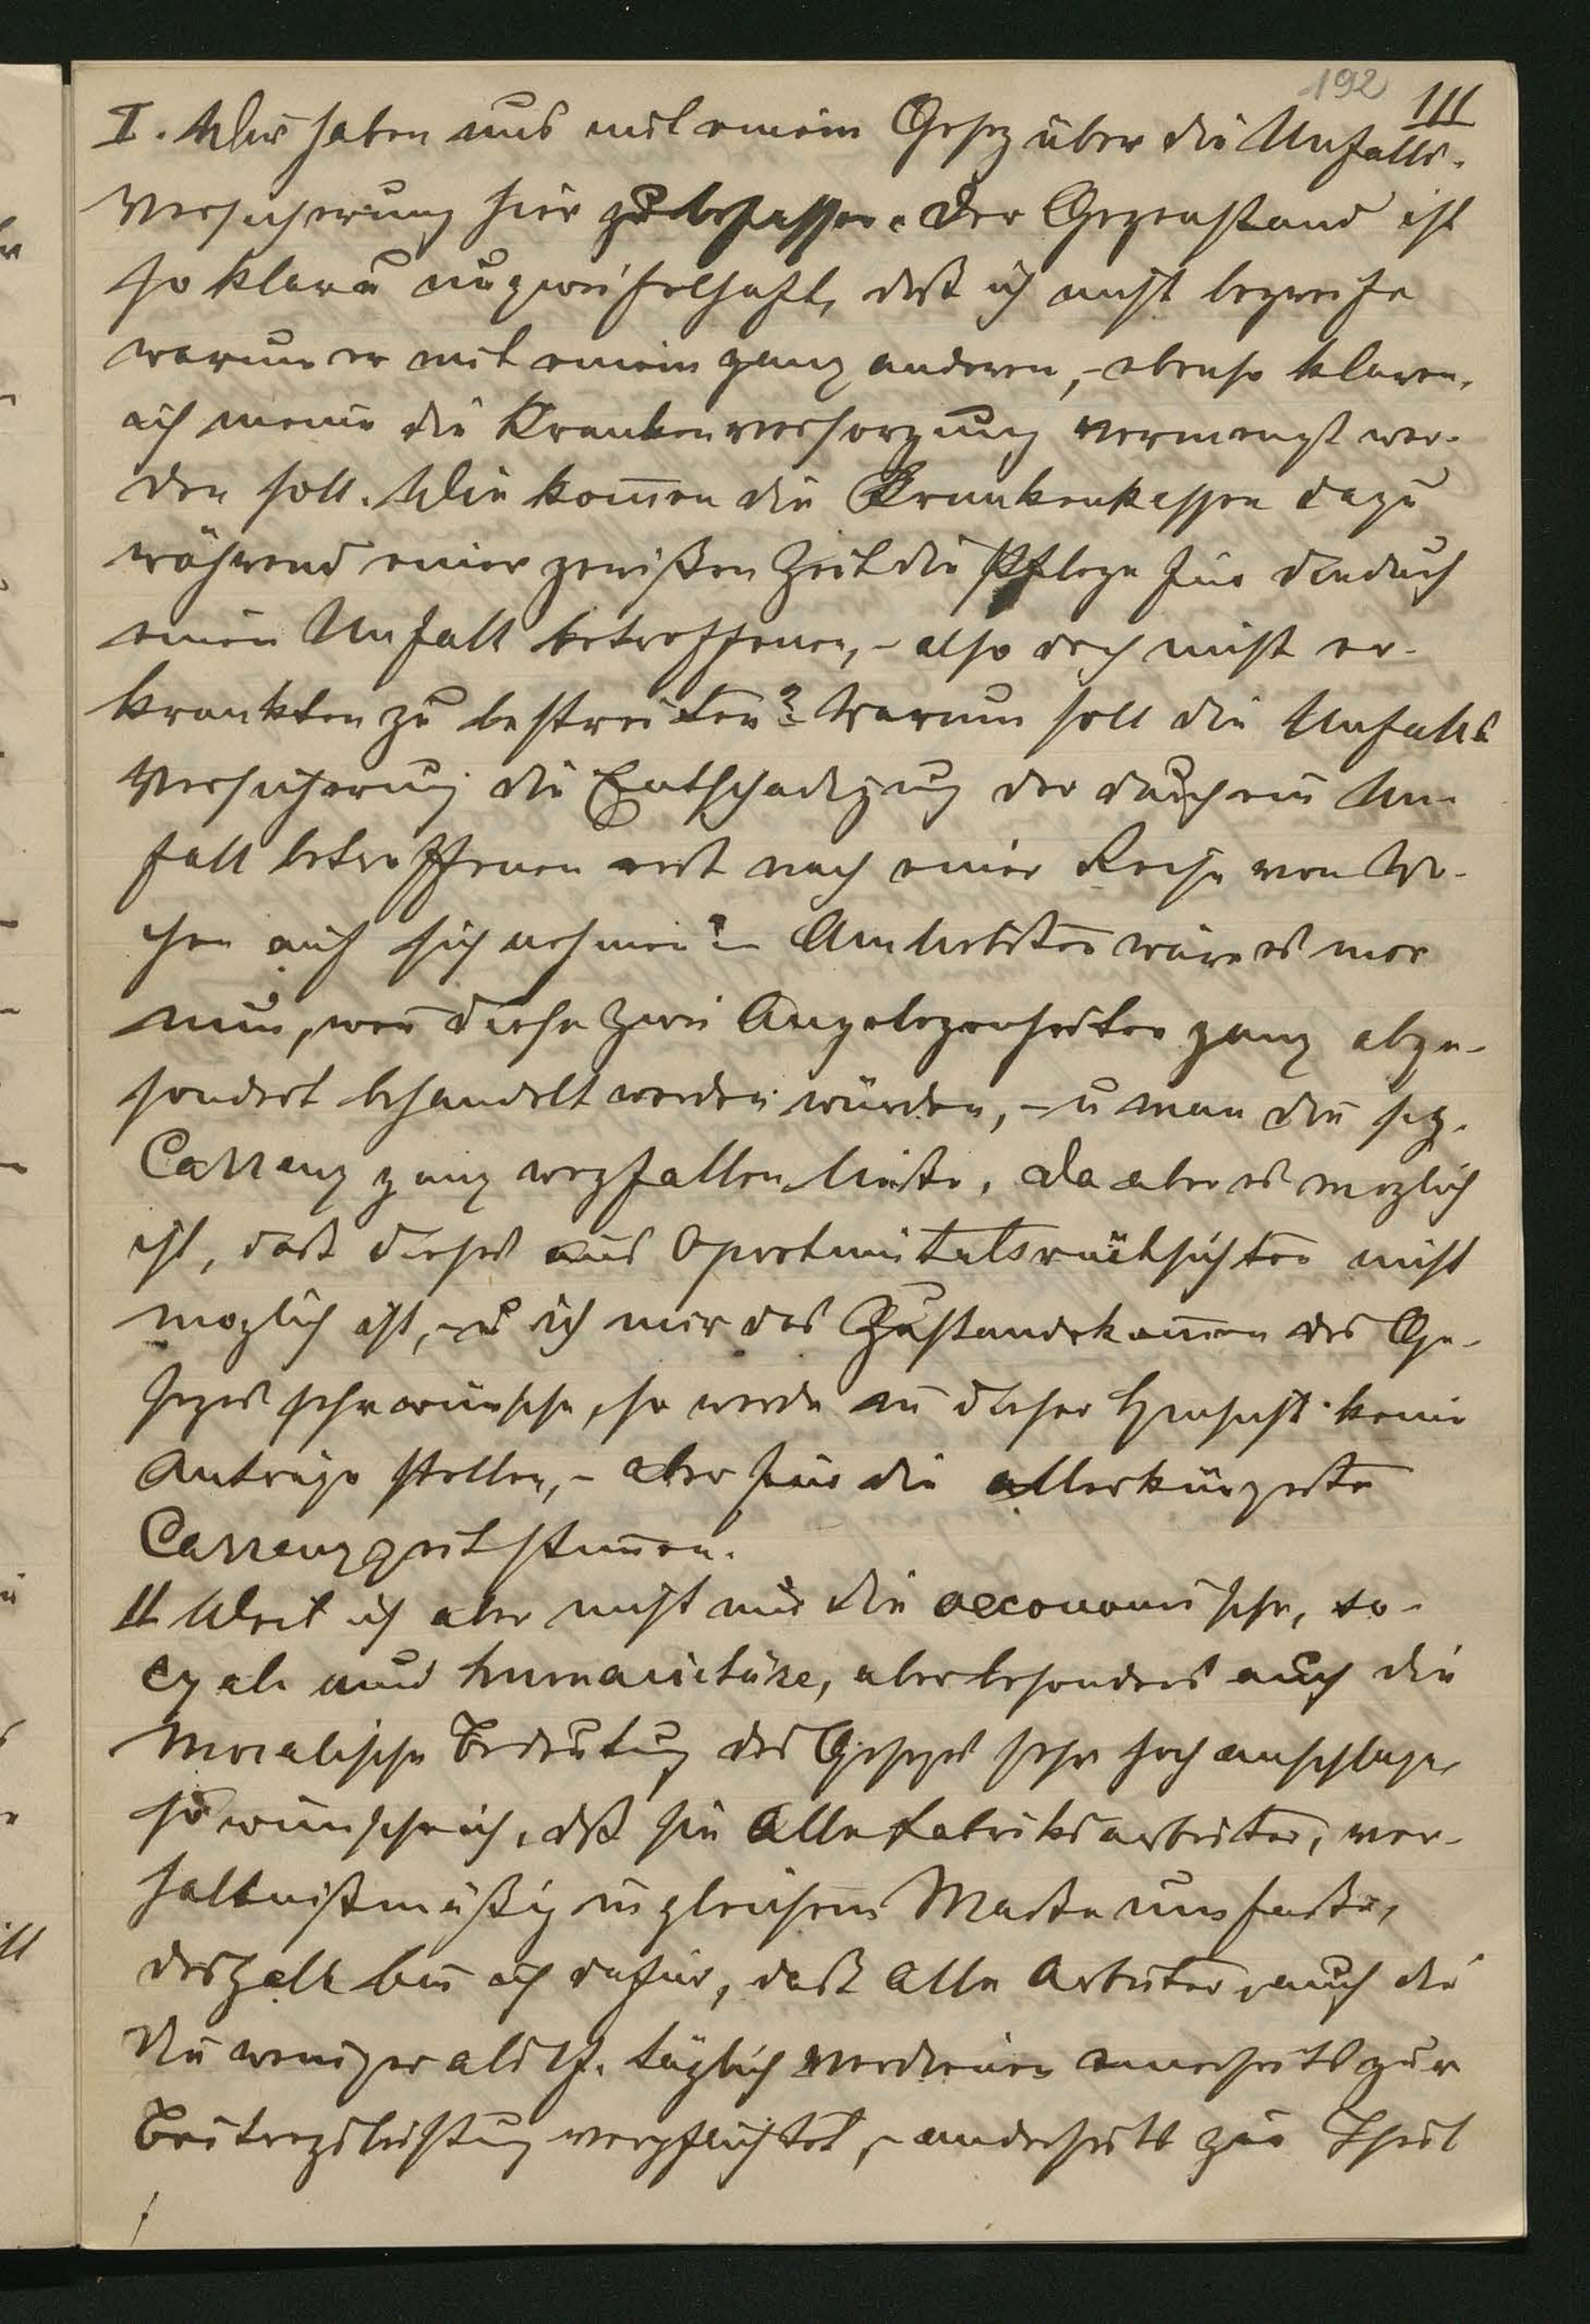 192
111
I. Wir haben uns mit einem Gesez über die Unfalls-
versicherung hier zu befassen. Der Gegenstand ist
so klar u unzweifelhaft, daß ich nicht begreife
warum er mit einem ganz anderen, - ebenso klaren,
ich meine die Krankenversorgung vermengt wer-
den soll. Wie kom̅en die Krankenkassen dazu
während einer gewißen Zeit die Pflege für die durch
einen Unfall betroffenen, - also doch nicht er-
krankten zu bestreiten? Warum soll die Unfalls
Versicherung die Entschädigung der durch ein Un-
fall betroffenen erst nach einer Reihe von Wo-
chen auf sich nehmen? - Am liebsten wäre es mir
nun, wen̅ diese zwei Angelegenheiten ganz abge-
sondert behandelt werden würden, - u man die sog.
Carrenz ganz wegfallen ließe. Da aber es moglich
ist, daß dieses aus Oportunitätsrücksichten nicht
moglich ist, - u ich mir das Zustandekom̅en des Ge-
sezes sehr wünsche, so werde in dieser Hinsicht keine
Anträge stellen, - aber für die allerkürzeste
Carrenzzeit stim̅en.
II Weil ich aber nicht nur die oeconomische, so-
cyale und humanitäre, aber besonders auch die
Moralische Bedeutung des Gesezes sehr hoch anschlage,
so wünsche ich, daß sie alle Fabriksarbeiter, ver-
haltnißmäßig in gleichem Maße umfaße,
deshalb bin ich dafür, daß alle Arbeiter, auch die
die weniger als 1 f. täglich verdienen einerseits zur
Beitragsleistung verpflichtet, - anderseits zur Theil